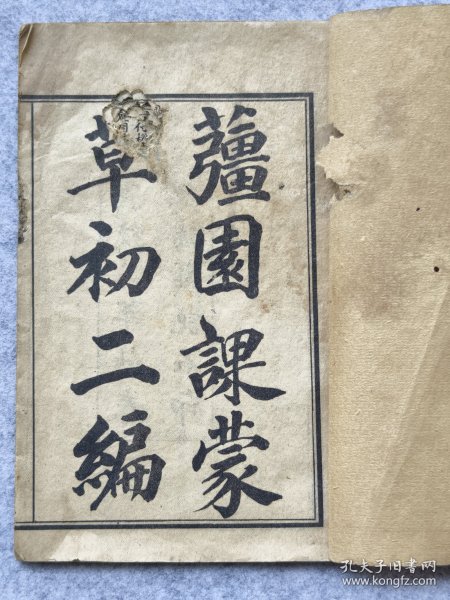 䕬園課蒙
草初二編
孔夫子旧书网
www.kongfz.com